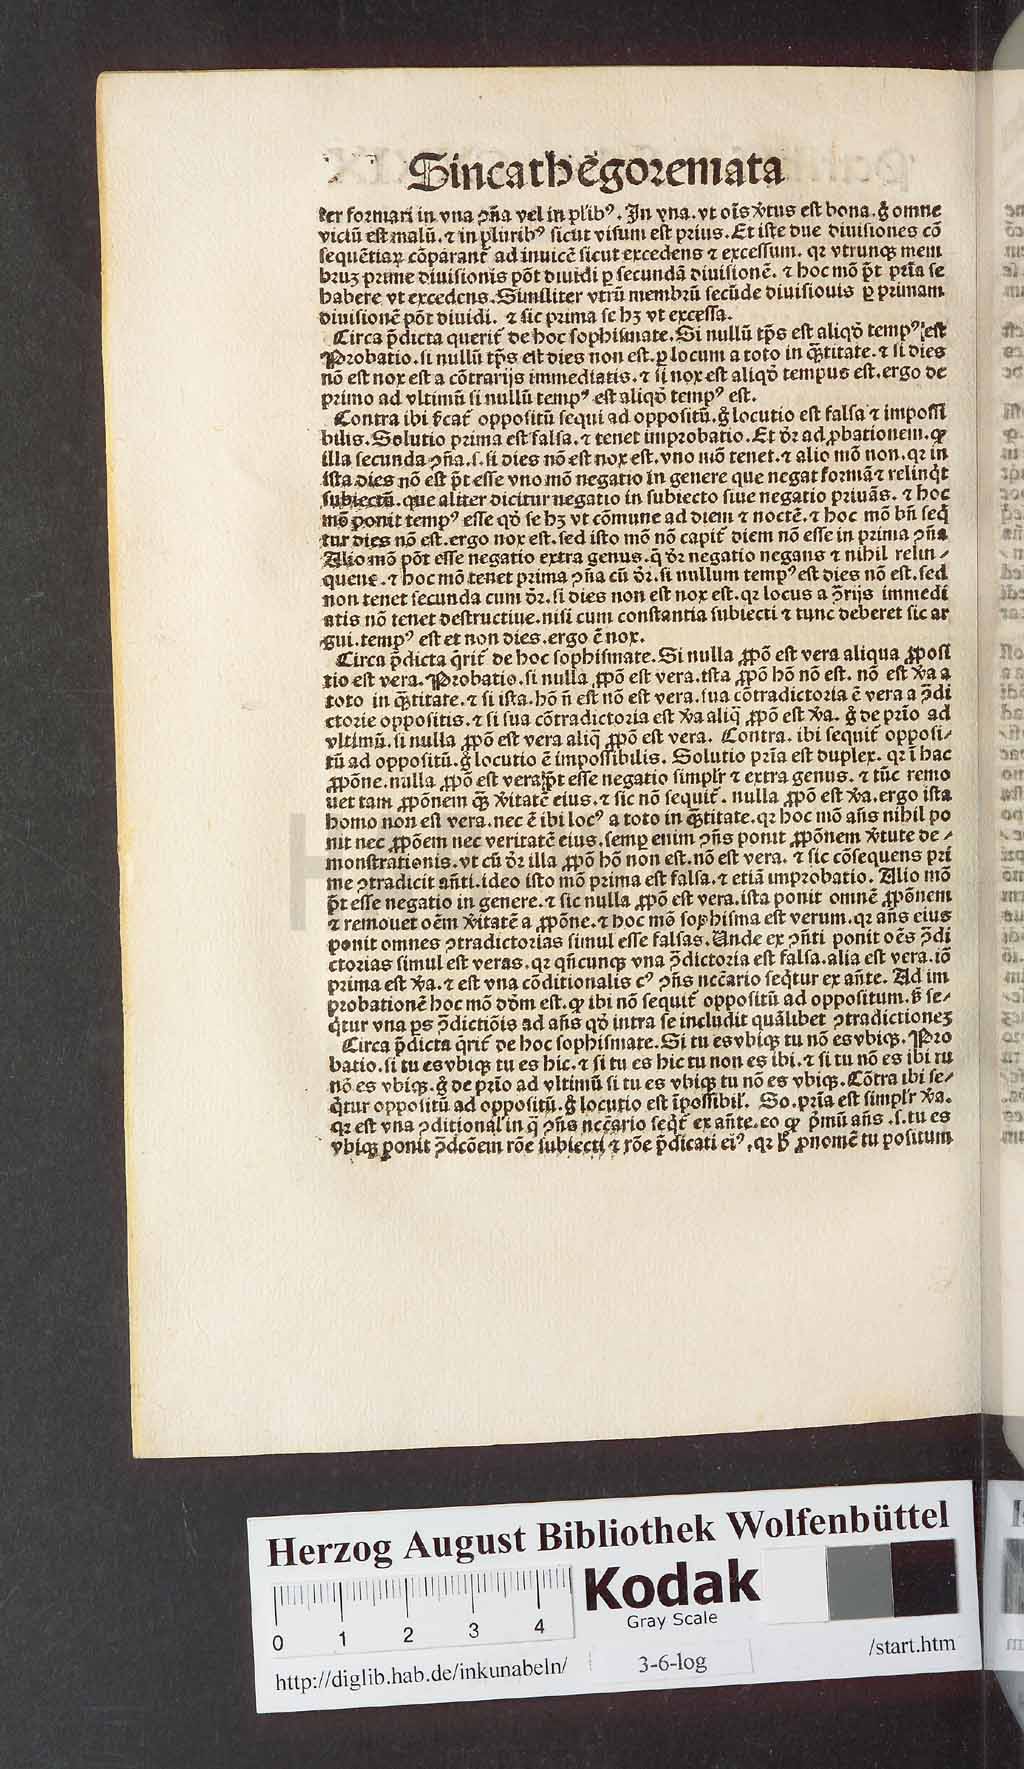 Sincathegoremata
ter formari in vna ↄña vel in plibꝰ. In vna. vt oi᷒s v̓tus est bona. g̊ omne
viciũ est malũ. ⁊ in pluribꝰ sicut visum est prius. Et iste due diuisiones cõ
sequẽtiaꝝ cõparant᷑ ad inuicẽ sicut excedens ⁊ excessum. qꝛ vtrunqꝫ mem
bruꝫ prime diuisionis põt diuidi ꝑ secundã diuisionẽ. ⁊ hoc mõ p̃t pría se
habere vt excedens. Similiter vtrũ membrũ secũde diuisiouis ꝑ primam
diuisionẽ põt diuidi. ⁊ sic prima se hꝫ vt excessa.
Circa p̃dicta querit᷑ de hoc sophismate. Si nullũ tp̃s est aliqđ tempꝰ est
Probatio. si nullũ tp̃s est dies non est. ꝑ locum a toto in q̃titate. ⁊ si dies
nõ est nox est a cõtrarijs immediatis. ⁊ si nox est aliqđ tempus est. ergo de
primo ad vltimũ si nullũ tempꝰ est aliqđ tempꝰ est.
Contra ibi oppositũ sequi ad oppositũ. g̊ locutio est falsa ⁊ impossi
bilis. Solutio prima est falsa. ⁊ tenet improbatio. Et đr ad ꝓbationem. ꝙ
illa secunda ↄña .s. si dies nõ est nox est. vno mõ tenet. ⁊ alio mõ non. qꝛ in
ista dies nõ est p̃t esse vno mõ negatio in genere que negat formã ⁊ relinq̇t
subiectũ. que aliter dicitur negatio in subiecto siue negatio priuãs. ⁊ hoc
mõ ponit tempꝰ esse qđ se hꝫ vt cõmune ad diem ⁊ noctẽ. ⁊ hoc mõ bñ seq̇
tur dies nõ est. ergo nox est. sed isto mõ nõ capit᷑ diem nõ esse in prima ↄña
Alio mõ põt esse negatio extra genus. q̃ đr negatio negans ⁊ nihil relin⸗
quens. ⁊ hoc mõ tenet prima ↄña cũ đr. si nullum tempꝰ est dies nõ est. sed
non tenet secunda cum đr. si dies non est nox est. qꝛ locus a ↄ̃rijs immedi
atis nõ tenet destructiue. nisi cum constantia subiecti ⁊ tunc deberet sic ar
gui. tempꝰ est et non dies. ergo ẽ nox.
Circa p̃dicta q̃rit᷑ de hoc sophismate. Si nulla ꝓpõ est vera aliqua ꝓposi
tio est vera. Probatio. si nulla ꝓpõ est vera. ista ꝓpõ hõ nõ est. nõ est v̓a a
toto in q̃titate. ⁊ si ista. hõ ñ est nõ est vera. sua cõtradictoria ẽ vera a ↄ̃di
ctorie oppositis. ⁊ si sua cõtradictoria est v̓a aliq̃ ꝓpõ est v̓a. g̊ de prı́o ad
vltimũ. si nulla ꝓpõ est vera aliq̃ ꝓpõ est vera. Contra. ibi sequit᷑ opposi⸗
tũ ad oppositũ. g̊ locutio ẽ impossibilis. Solutio pría est duplex. qꝛ ĩ hac
ꝓpõne. nulla ꝓpõ est vera p̃t esse negatio simplr̃ ⁊ extra genus. ⁊ tũc remo
uet tam ꝓpõnem q̃ꝫ v̓itatẽ eius. ⁊ sic nõ sequit᷑. nulla ꝓpõ est v̓a. ergo ista
homo non est vera. nec ẽ ibi locꝰ a toto in q̃titate. qꝛ hoc mõ añs nihil po
nit nec ꝓpõem nec veritatẽ eius. semꝑ enim ↄñs ponit ꝓpõnem v̓tute de⸗
monstrationis. vt cũ đr illa ꝓpõ hõ non est. nõ est vera. ⁊ sic cõsequens pri
me ↄtradicit añti. ideo isto mõ prima est falsa. ⁊ etiã improbatio. Alio mõ
p̃t esse negatio in genere. ⁊ sic nulla ꝓpõ est vera. ista ponit omnẽ ꝓpõnem
⁊ remouet oẽm v̓itatẽ a ꝓpõne. ⁊ hoc mõ sophisma est verum. qꝛ añs eius
ponit omnes ↄtradictorias simul esse falsas. Unde ex ↄñti ponit oẽs ↄ̃di
ctorias simul est veras. qꝛ qñcunqꝫ vna ↄ̃dictoria est falsa. alia est vera. iõ
prima est v̓a. ⁊ est vna cõditionalis cꝰ ↄñs ncc̃ario seq̇tur ex añte. Ad im
probationẽ hoc mõ đõm est. ꝙ ibi nõ sequit᷑ oppositũ ad oppositum. ß se⸗
q̇tur vna ps ↄ̃dictiõis ad añs qđ intra se includit quãlibet ↄtradictioneꝫ
Circa p̃dicta q̃rit᷑ de hoc sophismate. Si tu es vbiqꝫ tu nõ es vbiqꝫ. Pro
batio. si tu es vbiqꝫ tu es hic. ⁊ si tu es hic tu non es ibi. ⁊ si tu nõ es ibi tu
nõ es vbiqꝫ. g̊ de prı́o ad vltimũ si tu es vbiqꝫ tu nõ es vbiqꝫ. Cõtra ibi se⸗
q̇tur oppositũ ad oppositũ. g̊ locutio est ĩpossibil̓. So. pría est simplr̃ v̓a.
qꝛ est vna ↄditional̓ in q̃ ↄñs ncc̃ario seq̇t᷑ ex añte. eo ꝙ p̓mũ añs .s. tu es
vbiqꝫ ponit ↄ̃dcõem rõe subiecti ⁊ rõe p̃dicati eiꝰ. qꝛ ꝓnomẽ tu positum
Herzog August Bibliothek Wolfenbüttel
Kodak
Gray Scale
0 1 2 3 4
http://diglib.hab.de/inkunabeln/
3-6-log
/start.htm